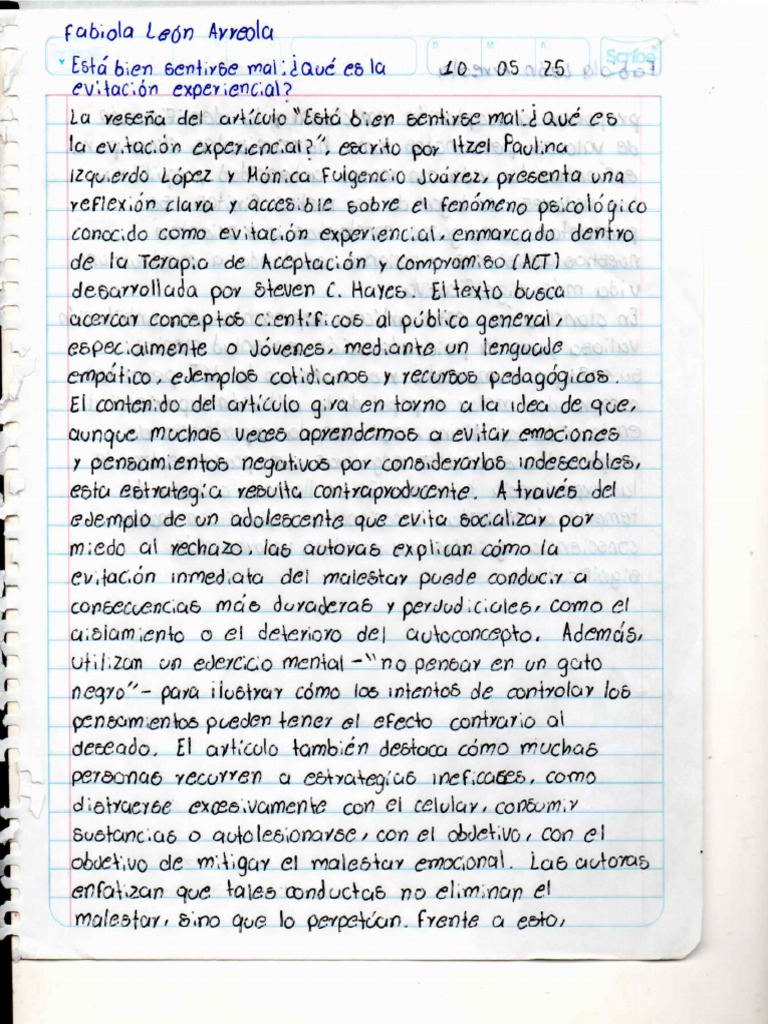 Fabiola León Arreola
Está bien sentirse mal:¿Qué es la
evitación experiencial?
D M A
10 05 25
Scribe
La reseña del artículo "Está bien sentirse mal:¿Qué es
la evitación experiencial?", escrito por Itzel Paulina
Izquierdo López y Mónica Fulgencio Juárez, presenta una
reflexión clara y accesible sobre el fenómeno psicológico
conocido como evitación experiencial, enmarcado dentro
de la Terapia de Aceptación y Compromiso (ACT)
desarrollada por Steven C. Hayes. El texto busca
acercar conceptos científicos al público general,
especialmente o Jóvenes, mediante un lenguaje
empático, ejemplos cotidianos y recursos pedagógicos.
El contenido del artículo gira en torno a la idea de que,
aunque muchas veces aprendemos a evitar emociones
y pensamientos negativos por considerarlos indeseables,
esta estrategia resulta contraproducente. A través del
ejemplo de un adolescente que evita socializar por
miedo al rechazo, las autoras explican cómo la
evitación inmediata del malestar puede conducir a
consecuencias más duraderas y perjudiciales, como el
aislamiento o el deterioro del autoconcepto. Además,
utilizan un ejercicio mental -"no pensar en un gato
negro"- para ilustrar cómo los intentos de controlar los
pensamientos pueden tener el efecto contrario al
deseado. El artículo también destaca cómo muchas
personas recurren a estrategias ineficases, como
distraerse excesivamente con el celular, consumir
sustancias o autolesionarse, con el objetivo, con el
objetivo de mitigar el malestar emocional. Las autoras
enfatizan que tales conductas no eliminan el
malestar, sino que lo perpetúan. Frente a esto,